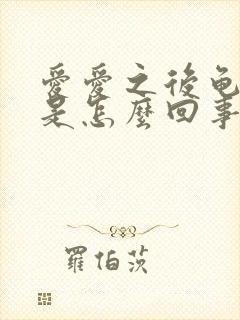 愛愛之後龟
是怎麼回事
羅伯茨